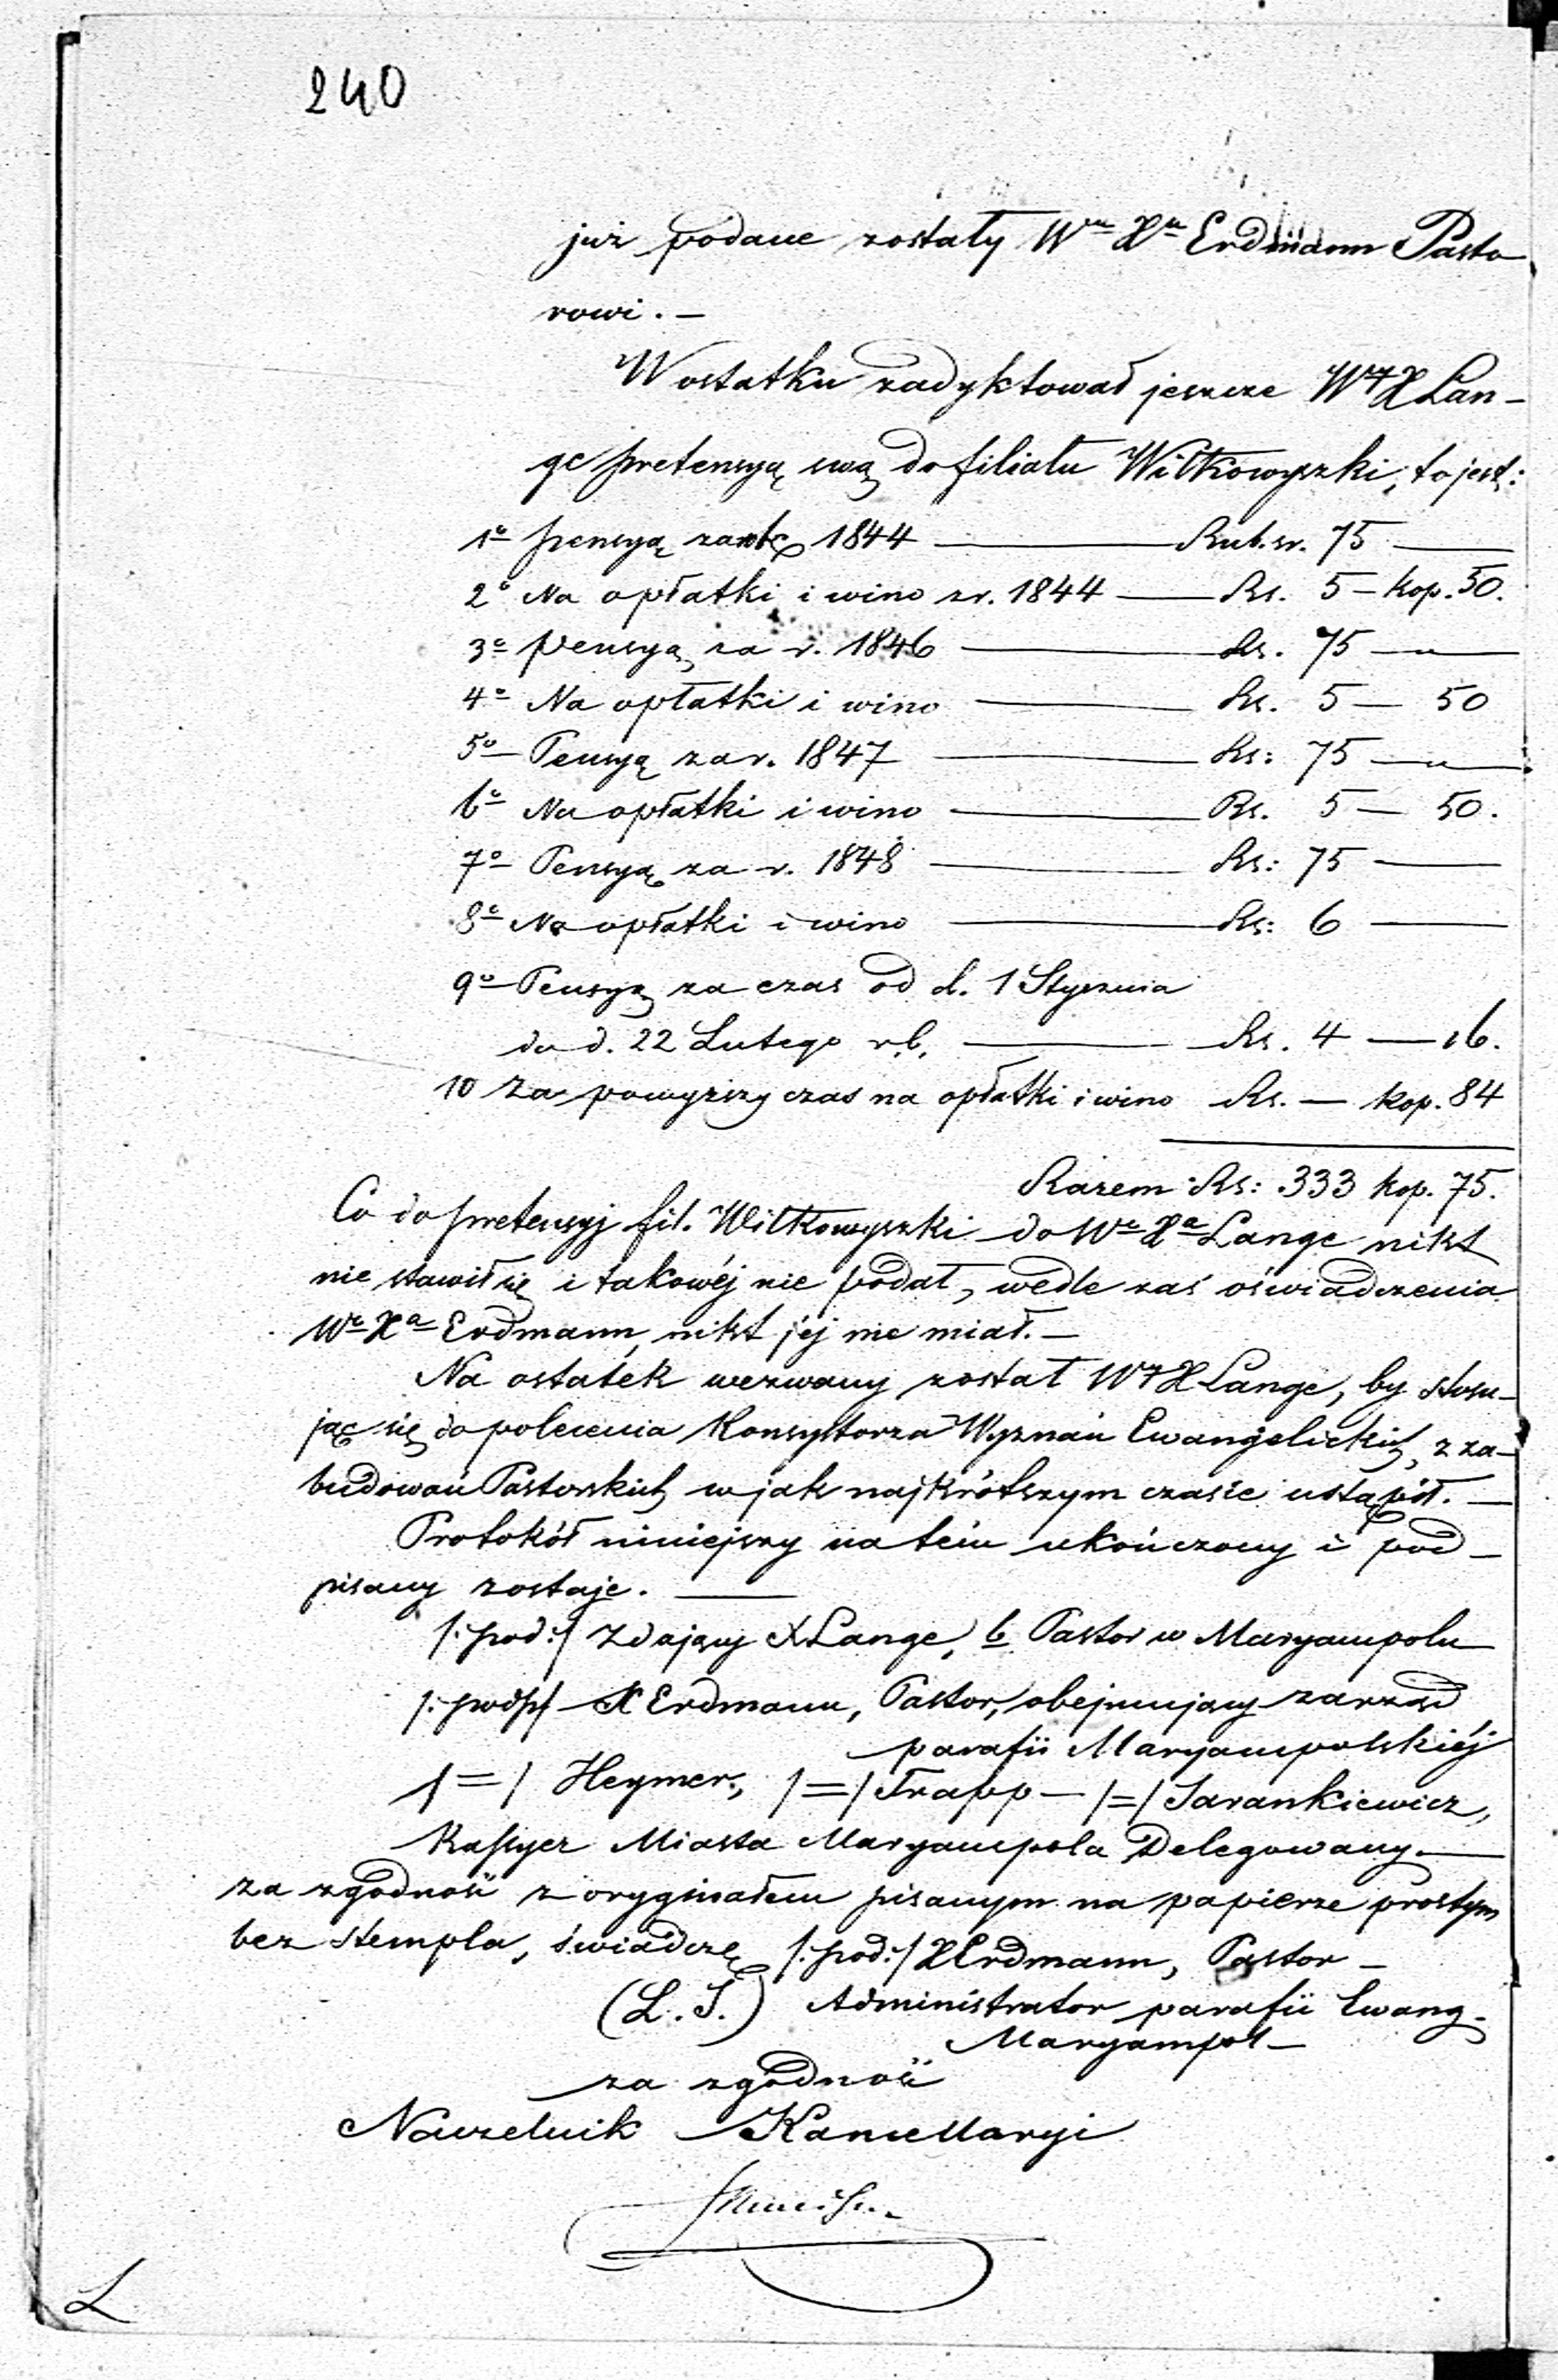 240
już podane zostały Wmu Xu Erdmann Pasto
rowi. —
W ostatku zadyktował jeszcze Wy X Lan-
ge pretensyą swą do filiału Wiłkowyszki, to jest:
1o pensyą za rok 1844 — Rub. sr. 75 —
2o Na opłatki i wino z r. 1844 — Rs. 5 — kop. 50.
3o Pensyą za r. 1846 — Rs. 75 — „ —
4o Na opłatki i wino — Rs. 5 — 50
5o Pensyą za r. 1847 — Rs: 75 — „ —
6o Na opłatki i wino — Rs. 5 — 50.
7o Pensyą za r. 1848 — Rs: 75 —
8o Na opłatki i wino — Rs: 6 —
9o Pensyą za czas od d. 1 Stycznia
do d. 22 Lutego r.b. — Rs. 4 — 16.
10 Za powyższy czas na opłatki i wino Rs. — kop. 84
Razem Rs: 333 kop. 75.
Co do pretensyj fil. Wiłkowyszki do Wo Xa Lange nikt
nie stawił się i takowéj nie podał, wedle zaś oświadczenia
Wo Xa Erdmann, nikt jéj nie miał. —
Na ostatek wezwany został Wy X Lange, by stosu-
jąc się do polecenia Konsystorza Wyznań Ewangelickich, z za-
budowań Pastorskich w jak najkrótszym czasie ustąpił. —
Protokół niniejszy na tém ukończony i pod-
pisany zostaje. —
/:pod:/ Zdający X Lange, b Pastor w Maryampolu
/:podp/ X Erdmann, Pastor, obejmujący zarząd
parafii Maryampolskiéj
/=/ Heymer, /=/ Trapp — /=/ Sarankiewicz,
Kassyer Miasta Maryampola Delegowany. —
za zgodność z oryginałem pisanym na papierze prostym
bez stempla, świadczę /:pod:/ X Erdmann, Pastor —
(L. S.) Administrator parafii Ewang.
Maryampol —
za zgodność
Naczelnik Kancellaryi
L